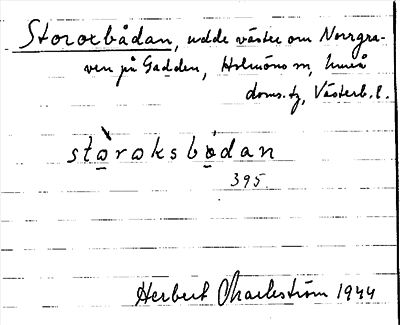 Storoxbådan, udde väster om Norrgra-
ven på Gadden, Holmöns sn, Umeå
doms. tg, Västerb. l.
stòraksbådan
395.
Herbert Markström 1944